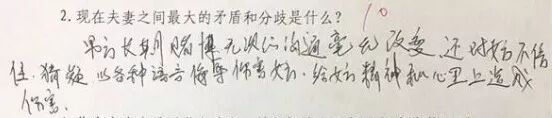 2. 现在夫妻之间最大的矛盾和分歧是什么? 10
男方长期赌博无、沟通毫无改变、还对女方不信
任、猜疑 以各种语言侮辱伤害女方、给女方精神和心里上造成
伤害.